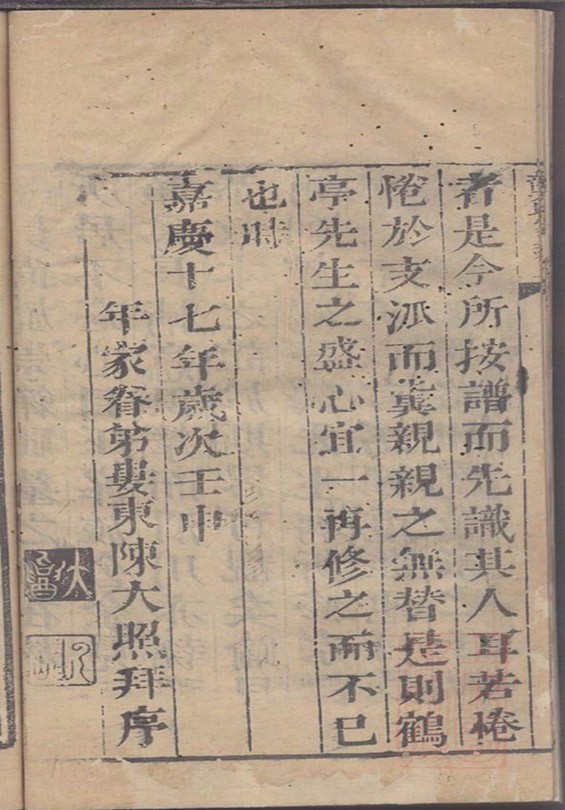 者是今所按譜而先識其人耳若惓
惓於支派而冀親親之無替是則鶴
亭先生之盛心宜一再修之而不已
也時
嘉慶十七年歲次壬申
年家眷弟婁東陳大照拜序